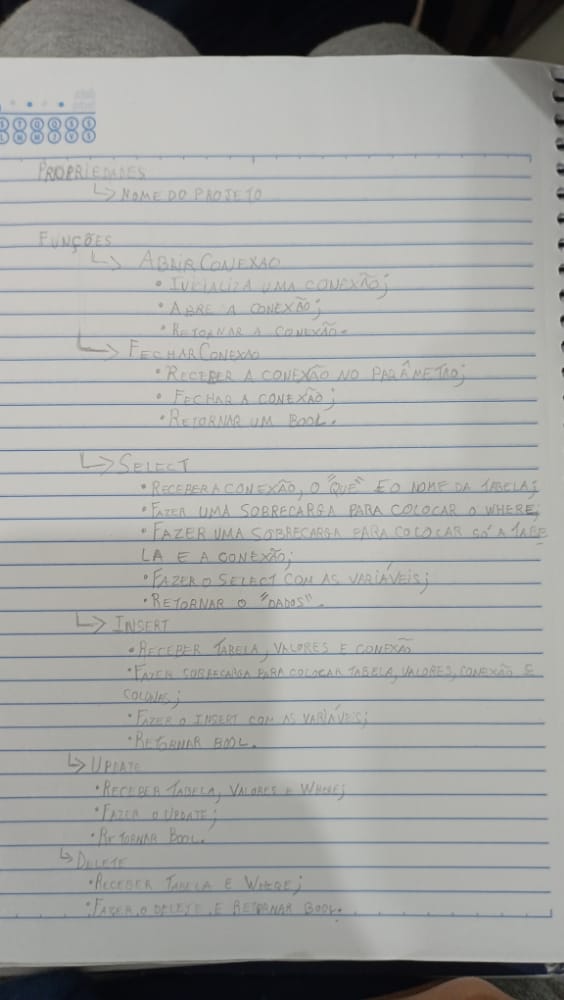 PROPRIEDADES
↳ NOME DO PROJETO
FUNÇÕES
↳ ABRIR CONEXAO
• INICIALIZA UMA CONEXÃO;
• ABRE A CONEXÃO;
• RETORNAR A CONEXÃO.
↳ FECHAR CONEXAO
• RECEBER A CONEXÃO NO PARÂMETRO;
• FECHAR A CONEXÃO;
• RETORNAR UM BOOL.
↳ SELECT
• RECEBER A CONEXÃO, O "QUE" E O NOME DA TABELA;
• FAZER UMA SOBRECARGA PARA COLOCAR O WHERE;
• FAZER UMA SOBRECARGA PARA COLOCAR SÓ A TABE
LA E A CONEXÃO;
• FAZER O SELECT COM AS VARIÁVEIS;
• RETORNAR O "DADOS".
↳ INSERT
• RECEBER TABELA, VALORES E CONEXÃO
• FAZER SOBRECARGA PARA COLOCAR TABELA, VALORES, CONEXÃO E
COLUNAS;
• FAZER O INSERT COM AS VARIÁVEIS;
• RETORNAR BOOL.
↳ UPDATE
• RECEBER TABELA, VALORES E WHERE;
• FAZER O UPDATE;
• RETORNAR BOOL.
↳ DELETE
• RECEBER TABELA E WHERE;
• FAZER O DELETE E RETORNAR BOOL.